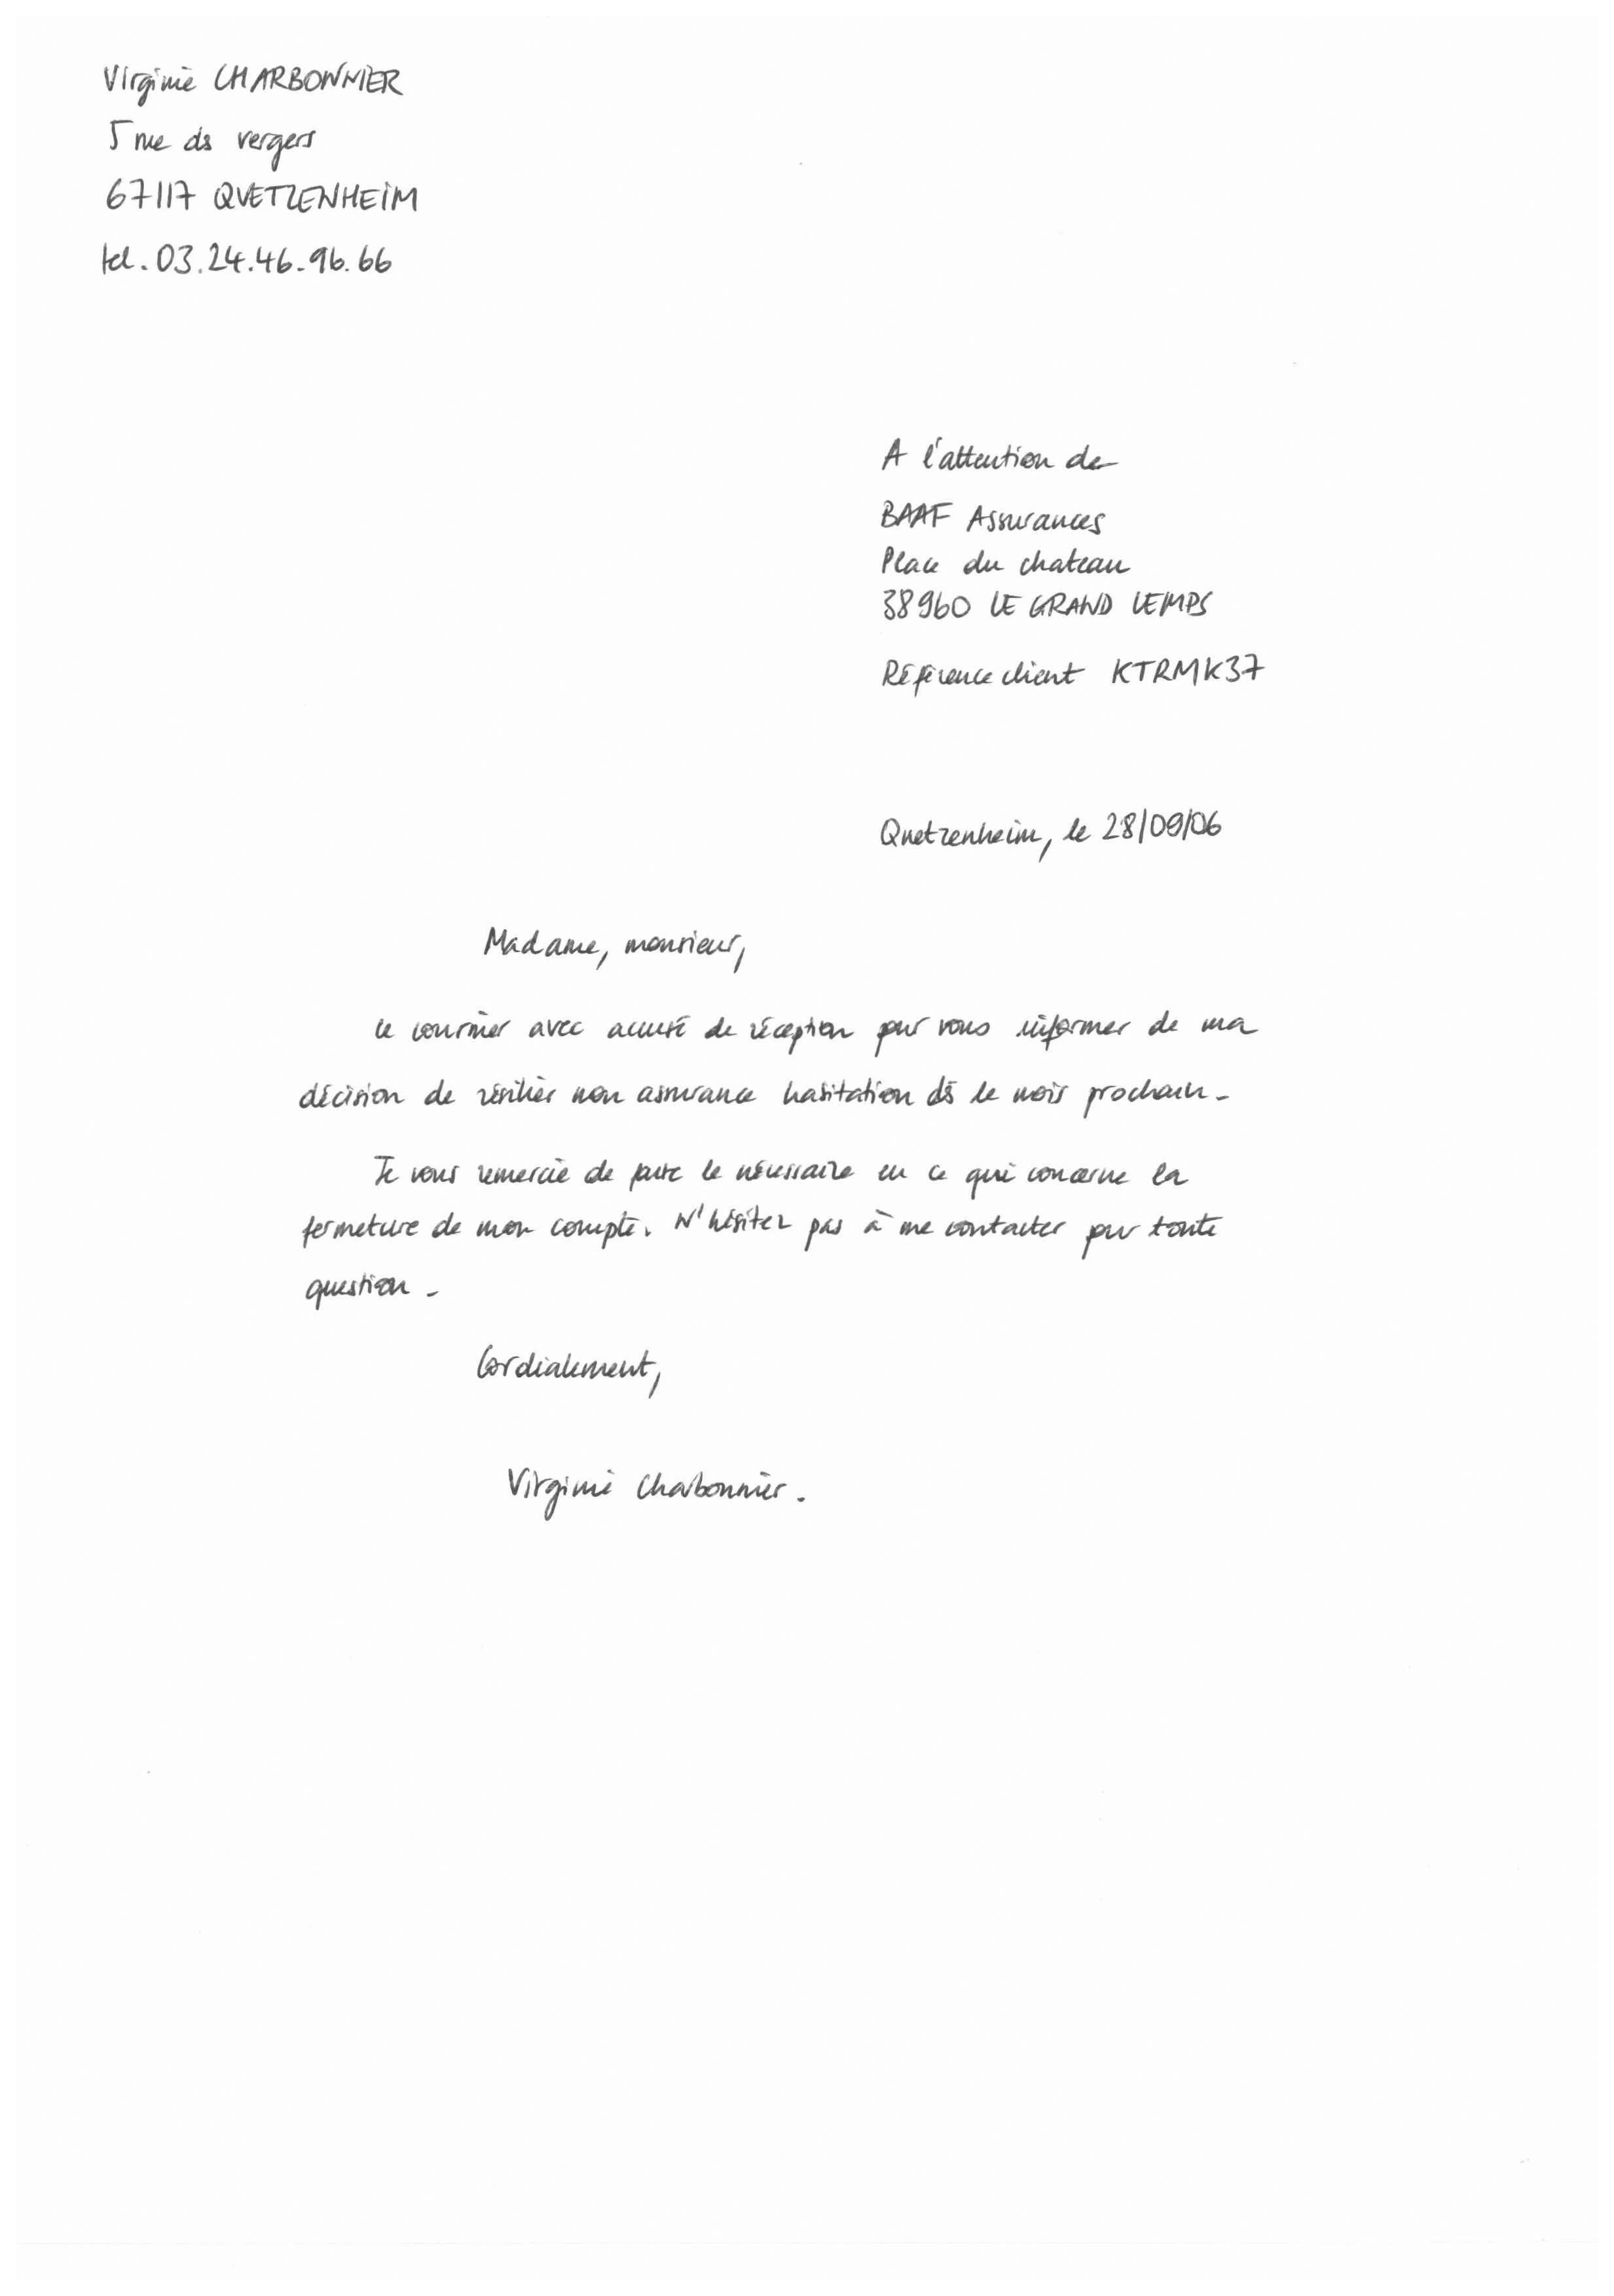 Virginie CHARBONNIER
5 rue des vergers
67117 QUETZENHEIM
tel. 03.24.46.96.66
A l'attention de
BAAF Assurances
Place du chateau
38960 LE GRAND LEMPS
Référence client KTRMK37
Quetzenheim, le 28/09/06
Madame, monsieur,
Ce courrier avec accusé de réception pour vous informer de ma
décision de résilier mon assurance habitation dès le mois prochain.
Je vous remercie de faire le nécessaire en ce qui concerne la
fermeture de mon compte. N'hésitez pas à me contacter pour toute
question.
Cordialement,
Virginie Charbonnier.